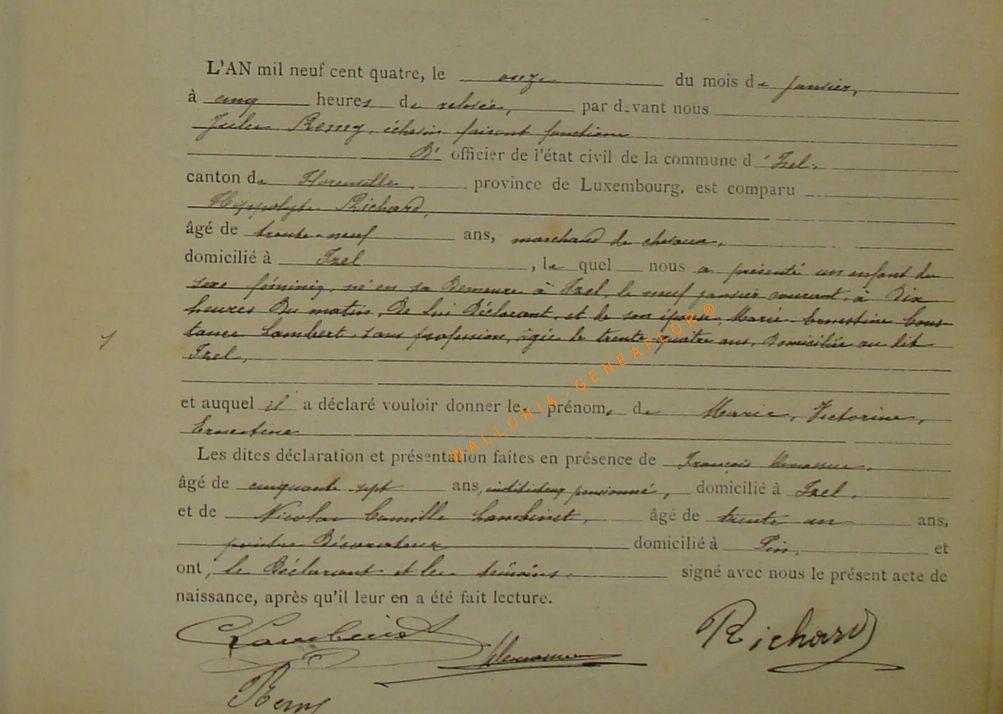 L'AN mil neuf cent quatre, le onze du mois de janvier,
à cinq heures de relevée, par devant nous
Jules Remy, échevin faisant fonctions
d' officier de l'état civil de la commune d 'Izel,
canton de Florenville province de Luxembourg, est comparu
Hyppolyte Richard,
âgé de trente-neuf ans, marchand de chevaux,
domicilié à Izel , le quel nous a présenté un enfant du
sexe féminin, né en sa demeure à Izel, le neuf janvier courant, à dix
heures du matin, de lui déclarant, et de son épouse, Marie Ernestine Cons-
tance Lambert, sans profession, âgée de trente quatre ans, domiciliée au dit
Izel,
et auquel il a déclaré vouloir donner les prénoms de Marie, Victorine,
Ernestine
Les dites déclaration et présentation faites en présence de François
âgé de cinquante sept ans, instituteur pensionné, domicilié à Izel,
et de Nicolas Camille Lambinet, âgé de trente un ans,
peintre décorateur domicilié à Pin, et
ont, le déclarant et les témoins, signé avec nous le présent acte de
naissance, après qu'il leur en a été fait lecture.
Lambinet
Richard
Remy
WALLONIA-GENEAFLOR®